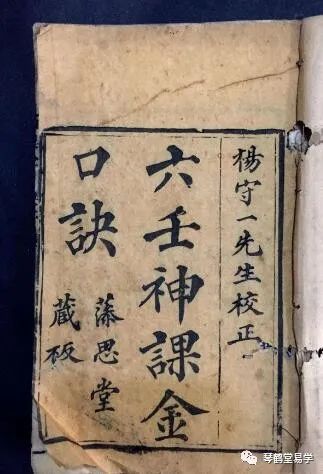 楊守一先生校正
六壬神課金
口訣
藻思堂
蔵板
琴鹤堂易学